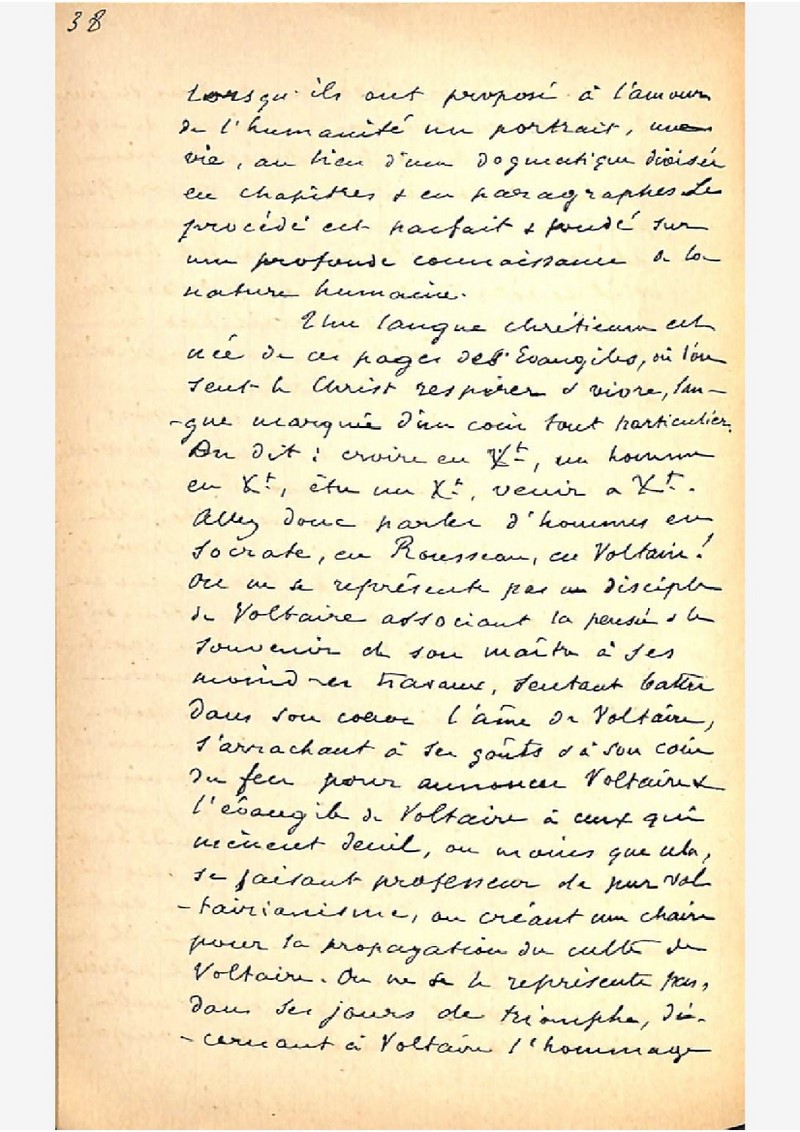 38
Lorsqu'ils ont proposé à l'amour
de l'humanité un portrait, une
vie, au lieu d'une dogmatique divisée
en chapitres & en paragraphes. Le
procédé est parfait & fondé sur
une profonde connaissance de la
nature humaine.
Une langue chrétienne est
née de ces pages des Evangiles, où l'on
sent le Christ respirer & vivre, lan-
-gue marquée d'un coin tout particulier.
On dit : croire en Xt, un homme
en Xt, être un Xt, venir à Xt.
Allez donc parler d'hommes en
Socrate, en Rousseau, en Voltaire!
On ne se représente pas un disciple
de Voltaire associant la pensée & le
souvenir de son maître à ses
moindres travaux, sentant battre
dans son coeur l'âme de Voltaire,
s'arrachant à ses goûts & à son coin
du feu pour annoncer Voltaire &
l'évangile de Voltaire à ceux qui
mènent deuil, ou moins que cela,
se faisant professeur de pur Vol
-tairianisme, ou créant une chaire
pour la propagation du culte de
Voltaire. On ne se le représente pas,
dans ses jours de triomphe, dé-
-cernant à Voltaire l'hommage